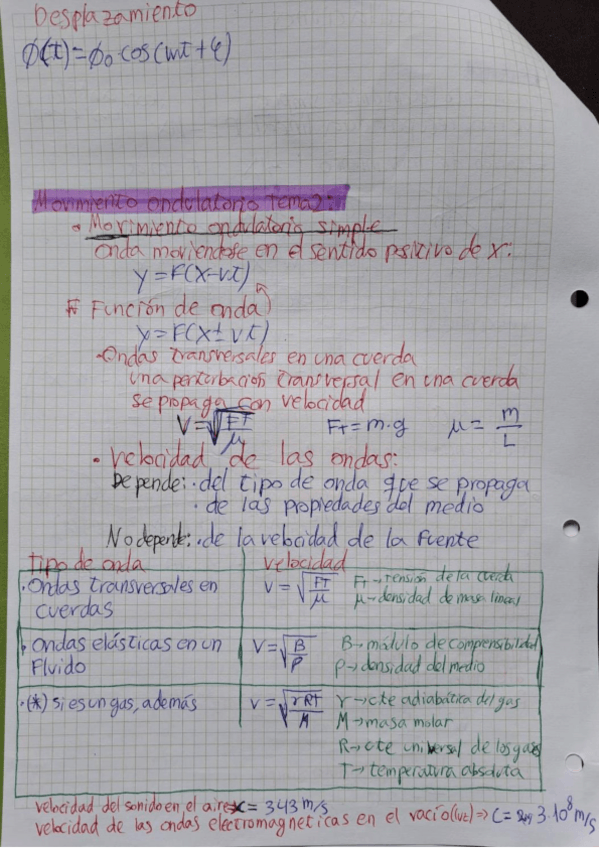 Desplazamiento
ϕ(t)=ϕ₀·cos(wt+φ)
Movimiento ondulatorio tema2:
• Movimiento ondulatorio simple
Onda moviendose en el sentido positivo de x:
y=F(x-vt)
Función de onda
y=F(x±vt)
·Ondas transversales en una cuerda
una perturbación transversal en una cuerda
se propaga con velocidad
V=√(FT/μ) FT=m·g μ=m/L
• velocidad de las ondas:
Depende: ·del tipo de onda que se propaga
· de las propiedades del medio
No depende: ·de la velocidad de la fuente
Tipo de onda velocidad
·Ondas transversales en cuerdas V=√(FT/μ) FT→tensión de la cuerda
μ→densidad de masa lineal
· Ondas elásticas en un Fluido V=√(B/ρ) B→módulo de comprensibilidad
ρ→densidad del medio
·(*) si es un gas, además V=√(γRT/M) γ→cte adiabática del gas
M→masa molar
R→cte universal de los gases
T→temperatura absoluta
velocidad del sonido en el aire = 343 m/s
velocidad de las ondas electromagneticas en el vacío(luz)⇒ C= 3·10⁸ m/s